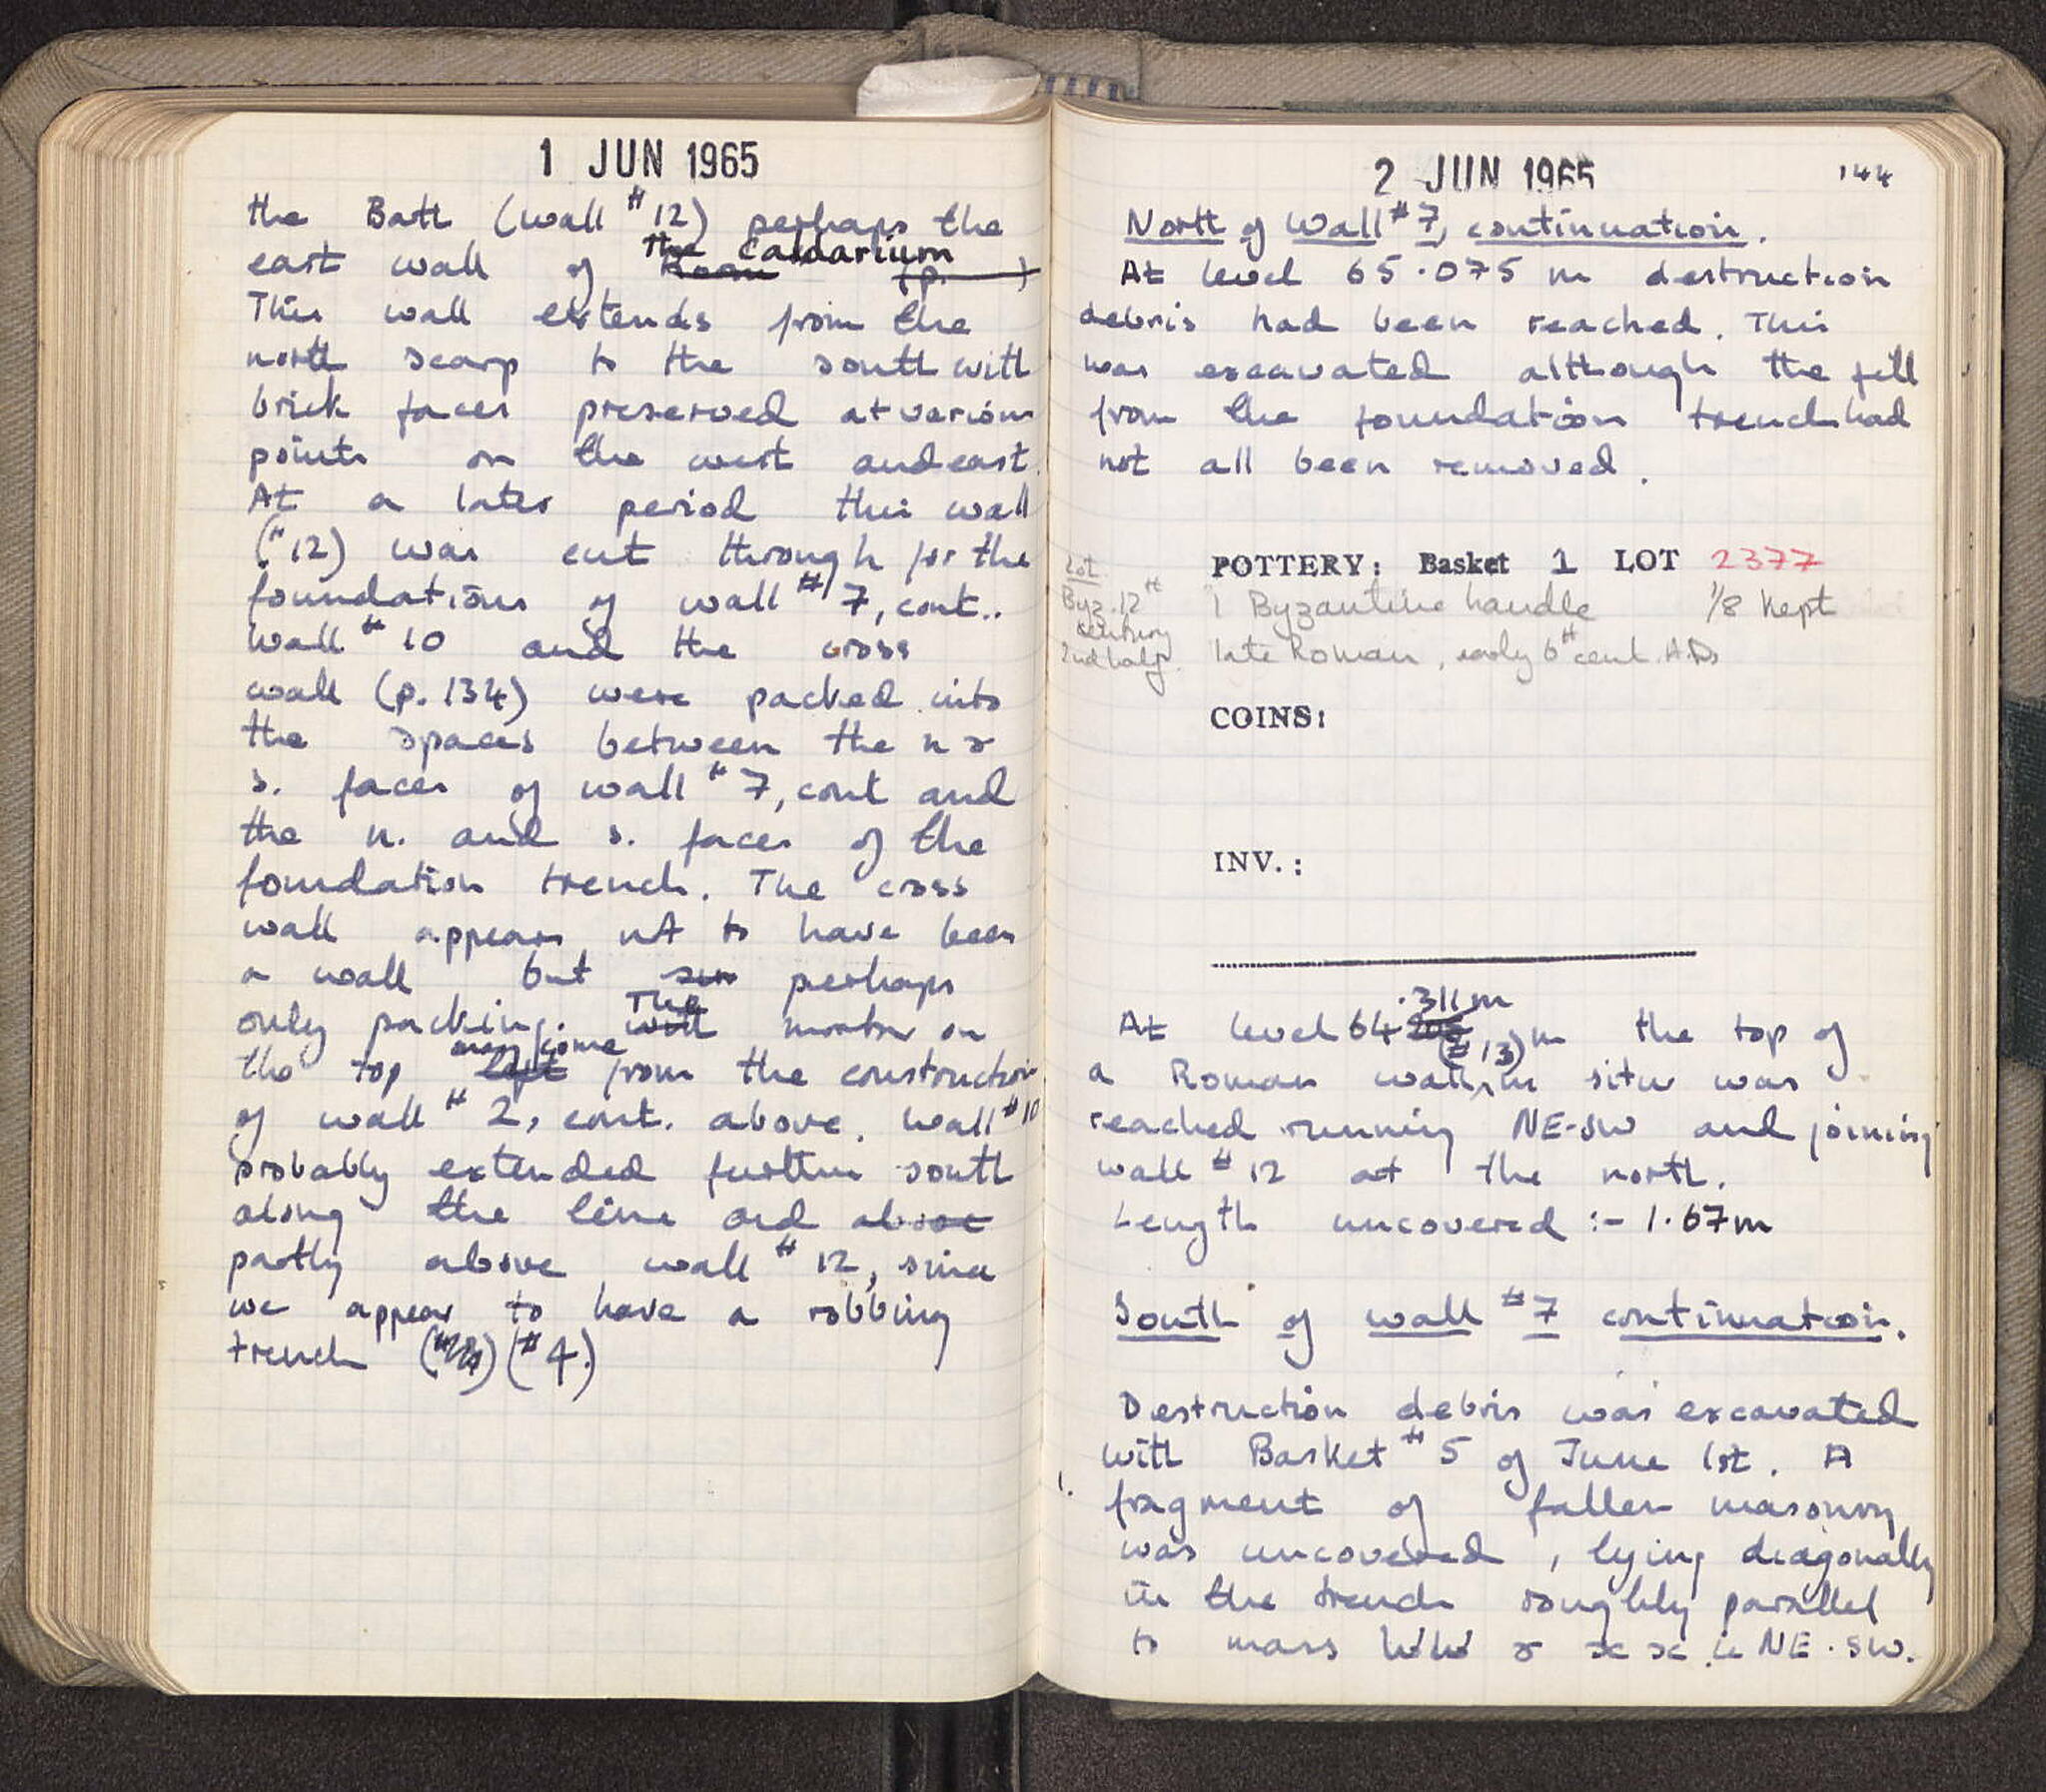 1 JUN 1965
the Bath (wall #12) perhaps the
east wall of the Caldarium
This wall extends from the
north scarp to the south with
brick faces preserved at various
points on the west and east.
At a later period this wall
(#12) was cut through for the
foundations of wall #7, cont..
Wall #10 and the cross
wall (p. 134) were packed into
the spaces between the n &
s. faces of wall #7, cont and
the n. and s. faces of the
foundation trench. The cross
wall appears not to have been
a wall but perhaps
only packing. The mortar on
the top may come from the construction
of wall #2, cont. above. Wall #10
probably extended further south
along the line and above
partly above wall #12, since
we appear to have a robbing
trench (#4.)
2 JUN 1965
144
North of Wall #7, continuation.
At level 65.075 m destruction
debris had been reached. This
was excavated although the fill
from the foundation trench had
not all been removed.
POTTERY: Basket 1 LOT 2377
Lot
Byz. 12th
century
2nd half.
1 Byzantine handle 1/8 kept
late Roman, early 6th cent. A.D.
COINS:
INV.:
At level 64.311m m the top of
a Roman wall (#13) in situ was
reached running NE-SW and joining
wall #12 at the north.
Length uncovered :- 1.67m
South of wall #7 continuation.
Destruction debris was excavated
with Basket #5 of June 1st. A
1. fragment of fallen masonry
was uncovered, lying diagonally
in the trench roughly parallel
to mass WW & xx ie NE-SW.